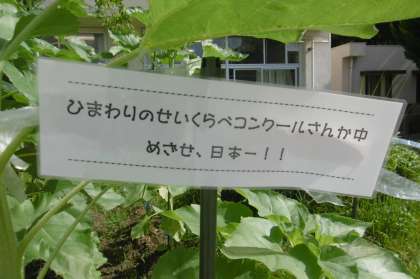 ひまわりのせいくらべコンクールさんか中
めざせ、日本一！！